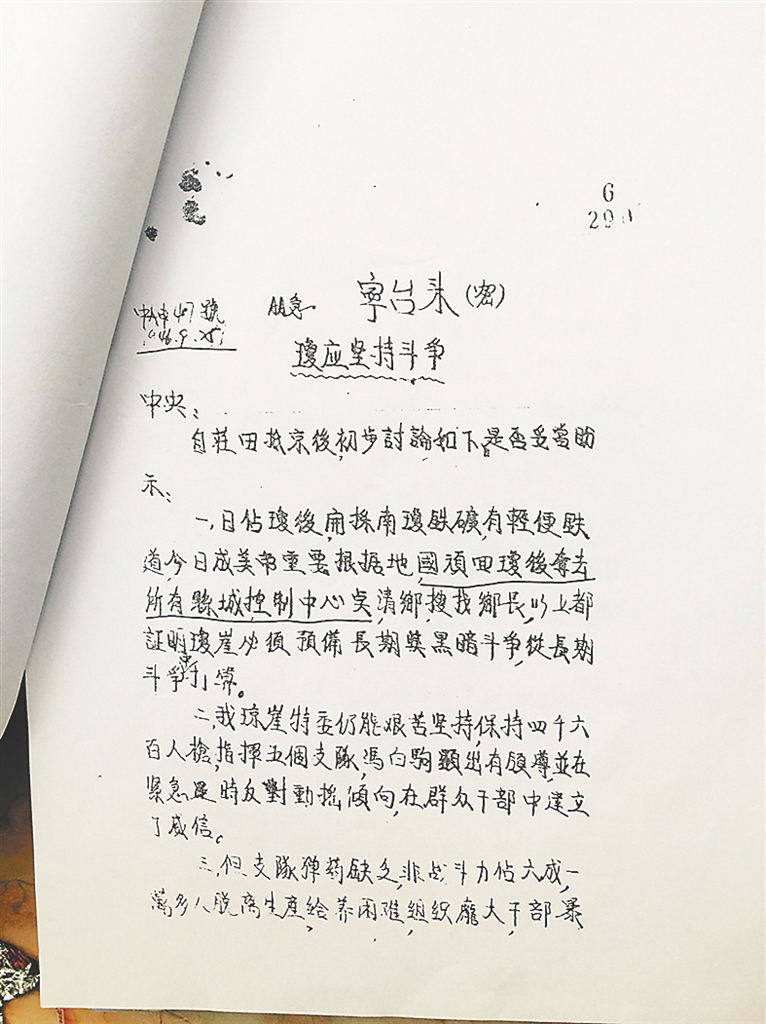 6
290
AA急 寧台来(密)
中央中47號
瓊应坚持斗爭
1946.9.25.
中央:
自莊田抵京後,初步討論如下,是否妥當盼
示:
一、日佔瓊後,開採南瓊鉄礦,有輕便鉄
道,今日成美帝重要根据地,國頑回瓊後奪去
所有縣城,控制中心点,清鄉,搜找鄉長,以上都
証明瓊崖必須預備長期與黑暗斗爭,從長期
斗爭打算。
二、我琼崖特委仍能艰苦坚持,保持四千六
百人槍,指揮五個支隊,馮白駒顕出有領導並在
緊急是時反對動搖傾向,在群众干部中建立
了威信。
三、但支隊弹葯缺乏,非战斗力佔六成,一
萬多人脱离生產,給养困难,組織龐大,干部暴